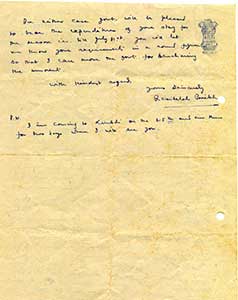 In either case Govt. will be pleased
to bear the expenditure of your stay for
the season i.e. till July
know your requirements in a round figure
so that I can move the govt. for sanctioning
the amount.
With kindest regards
Yours Sincerely
P.S.
I am coming to on the 25th and am there
for two days. Then I will see you.